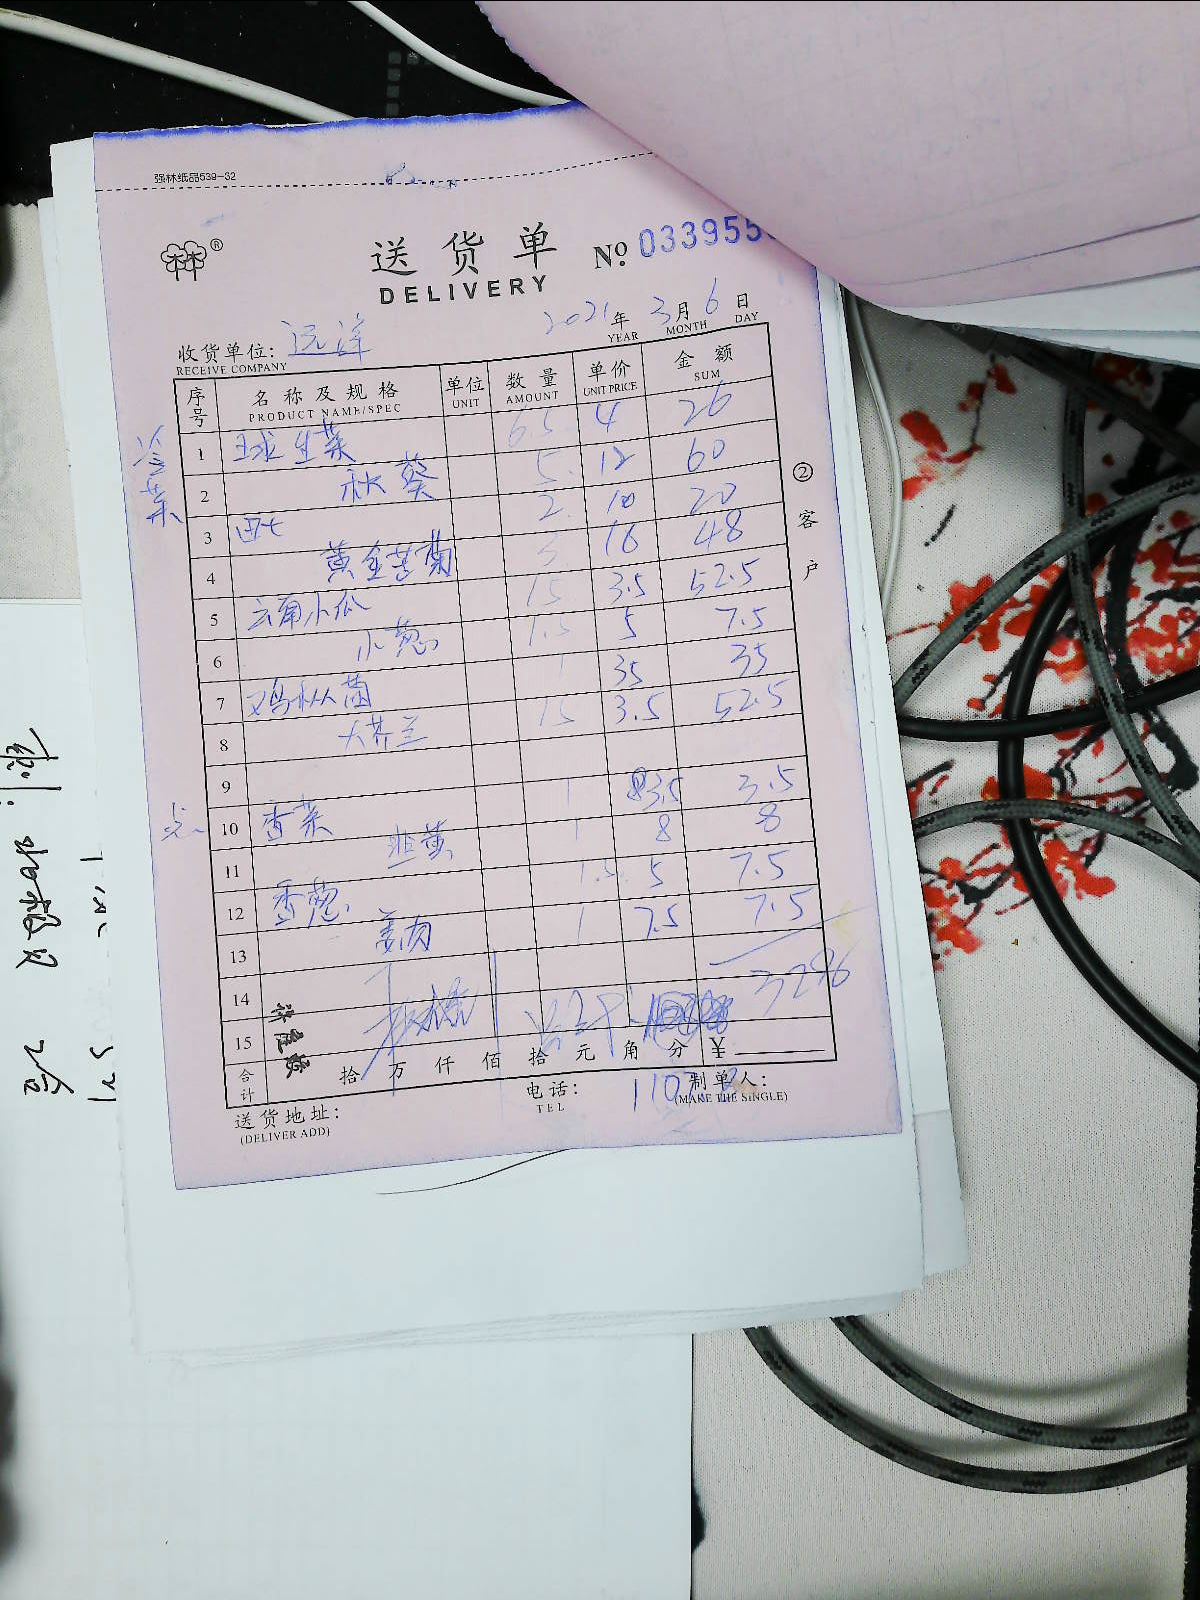 强林纸品539-32
®
送货单 No. 033955
DELIVERY
2021年 3月 6日
YEAR MONTH DAY
收货单位: 远洋
RECEIVE COMPANY
序号 名称及规格 单位 数量 单价 金额
PRODUCT NAME/SPEC UNIT AMOUNT UNIT PRICE SUM
1 球生菜 6.5 4 26
2 秋葵 5 12 60
3 2 10 20
4 黄金苦菊 3 16 48
5 云南小瓜 15 3.5 52.5
6 小葱 1.5 5 7.5
7 鸡枞菌 1 35 35
8 大芥兰 15 3.5 52.5
9
10 香菜 1 3.5 3.5
11 韭黄 1 8 8
12 香葱 1.5 5 7.5
13 姜肉 1 7.5 7.5
14
15
合计 拾 万 仟 佰 拾 元 角 分 ¥
送货地址:
(DELIVER ADD)
电话:
TEL
制单人:
(MAKE THE SINGLE)
②客户